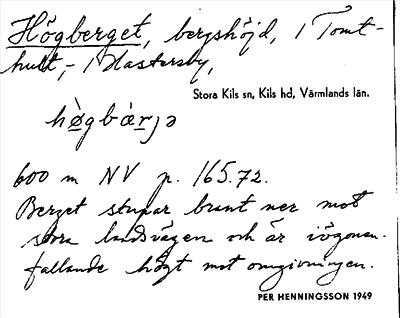 Högberget, bergshöjd, i Tomt-
hult, i Hastersby,
Stora Kils sn, Kils hd, Värmlands län.
hø̀gbærjə
600 m NV p. 165.72.
Berget stupar brant ner mot
stora landsvägen och är iögonen-
fallande högt mot omgivningen.
PER HENNINGSSON 1949